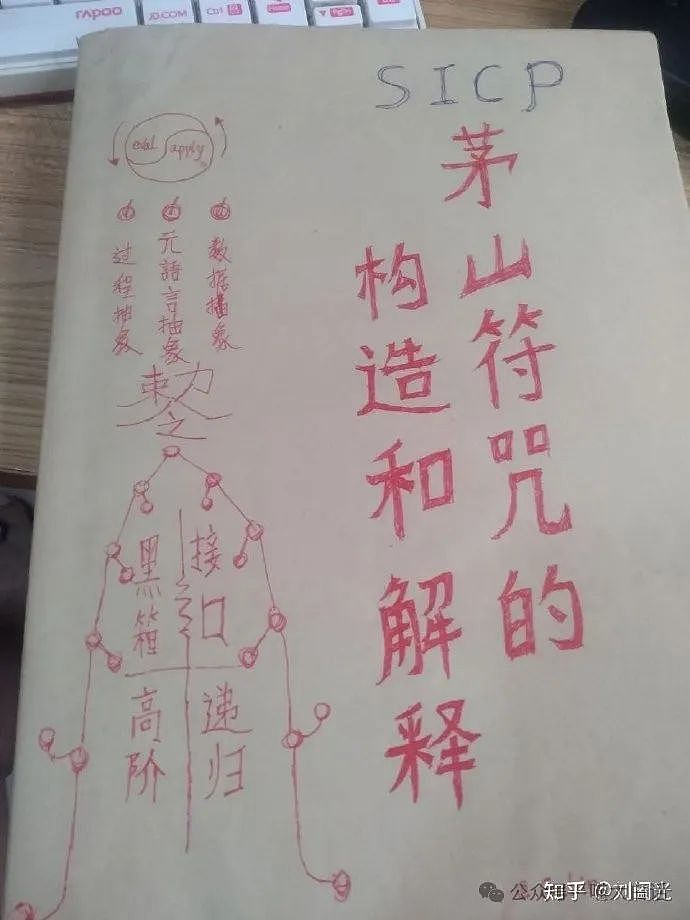 rapoo
JD.COM
Ctrl
SICP
茅山符咒的
构造和解释
eval apply
数据抽象
元語言抽象
过程抽象
敕令
黑箱
接口
高阶
递归
知乎 @刘阖光
公众号